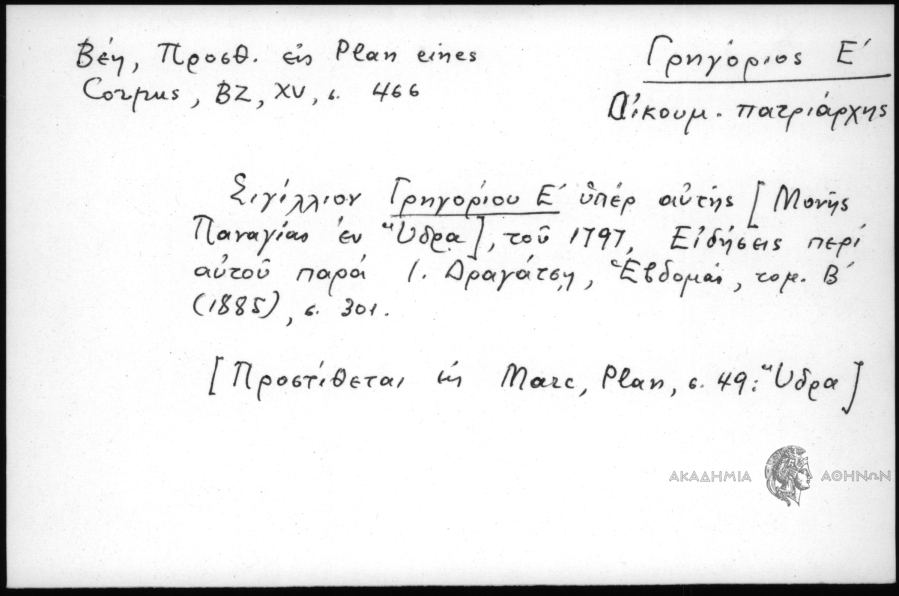 Βέη, Προσθ. εἰς Plan eines
Corpus, BZ, XV, σ. 466
Γρηγόριος Ε΄
Οἰκουμ. πατριάρχης
Σιγίλλιον Γρηγορίου Ε΄ ὑπέρ αὐτῆς [Μονῆς
Παναγίας ἐν Ὕδρᾳ], τοῦ 1797, Εἰδήσεις περί
αὐτοῦ παρά Ι. Δραγάτση, Ἑβδομάς, τομ. Β΄
(1885), σ. 301.
[Προστίθεται εἰς Marc, Plan, σ. 49: Ὕδρα]
ΑΚΑΔΗΜΙΑ ΑΘΗΝΩΝ